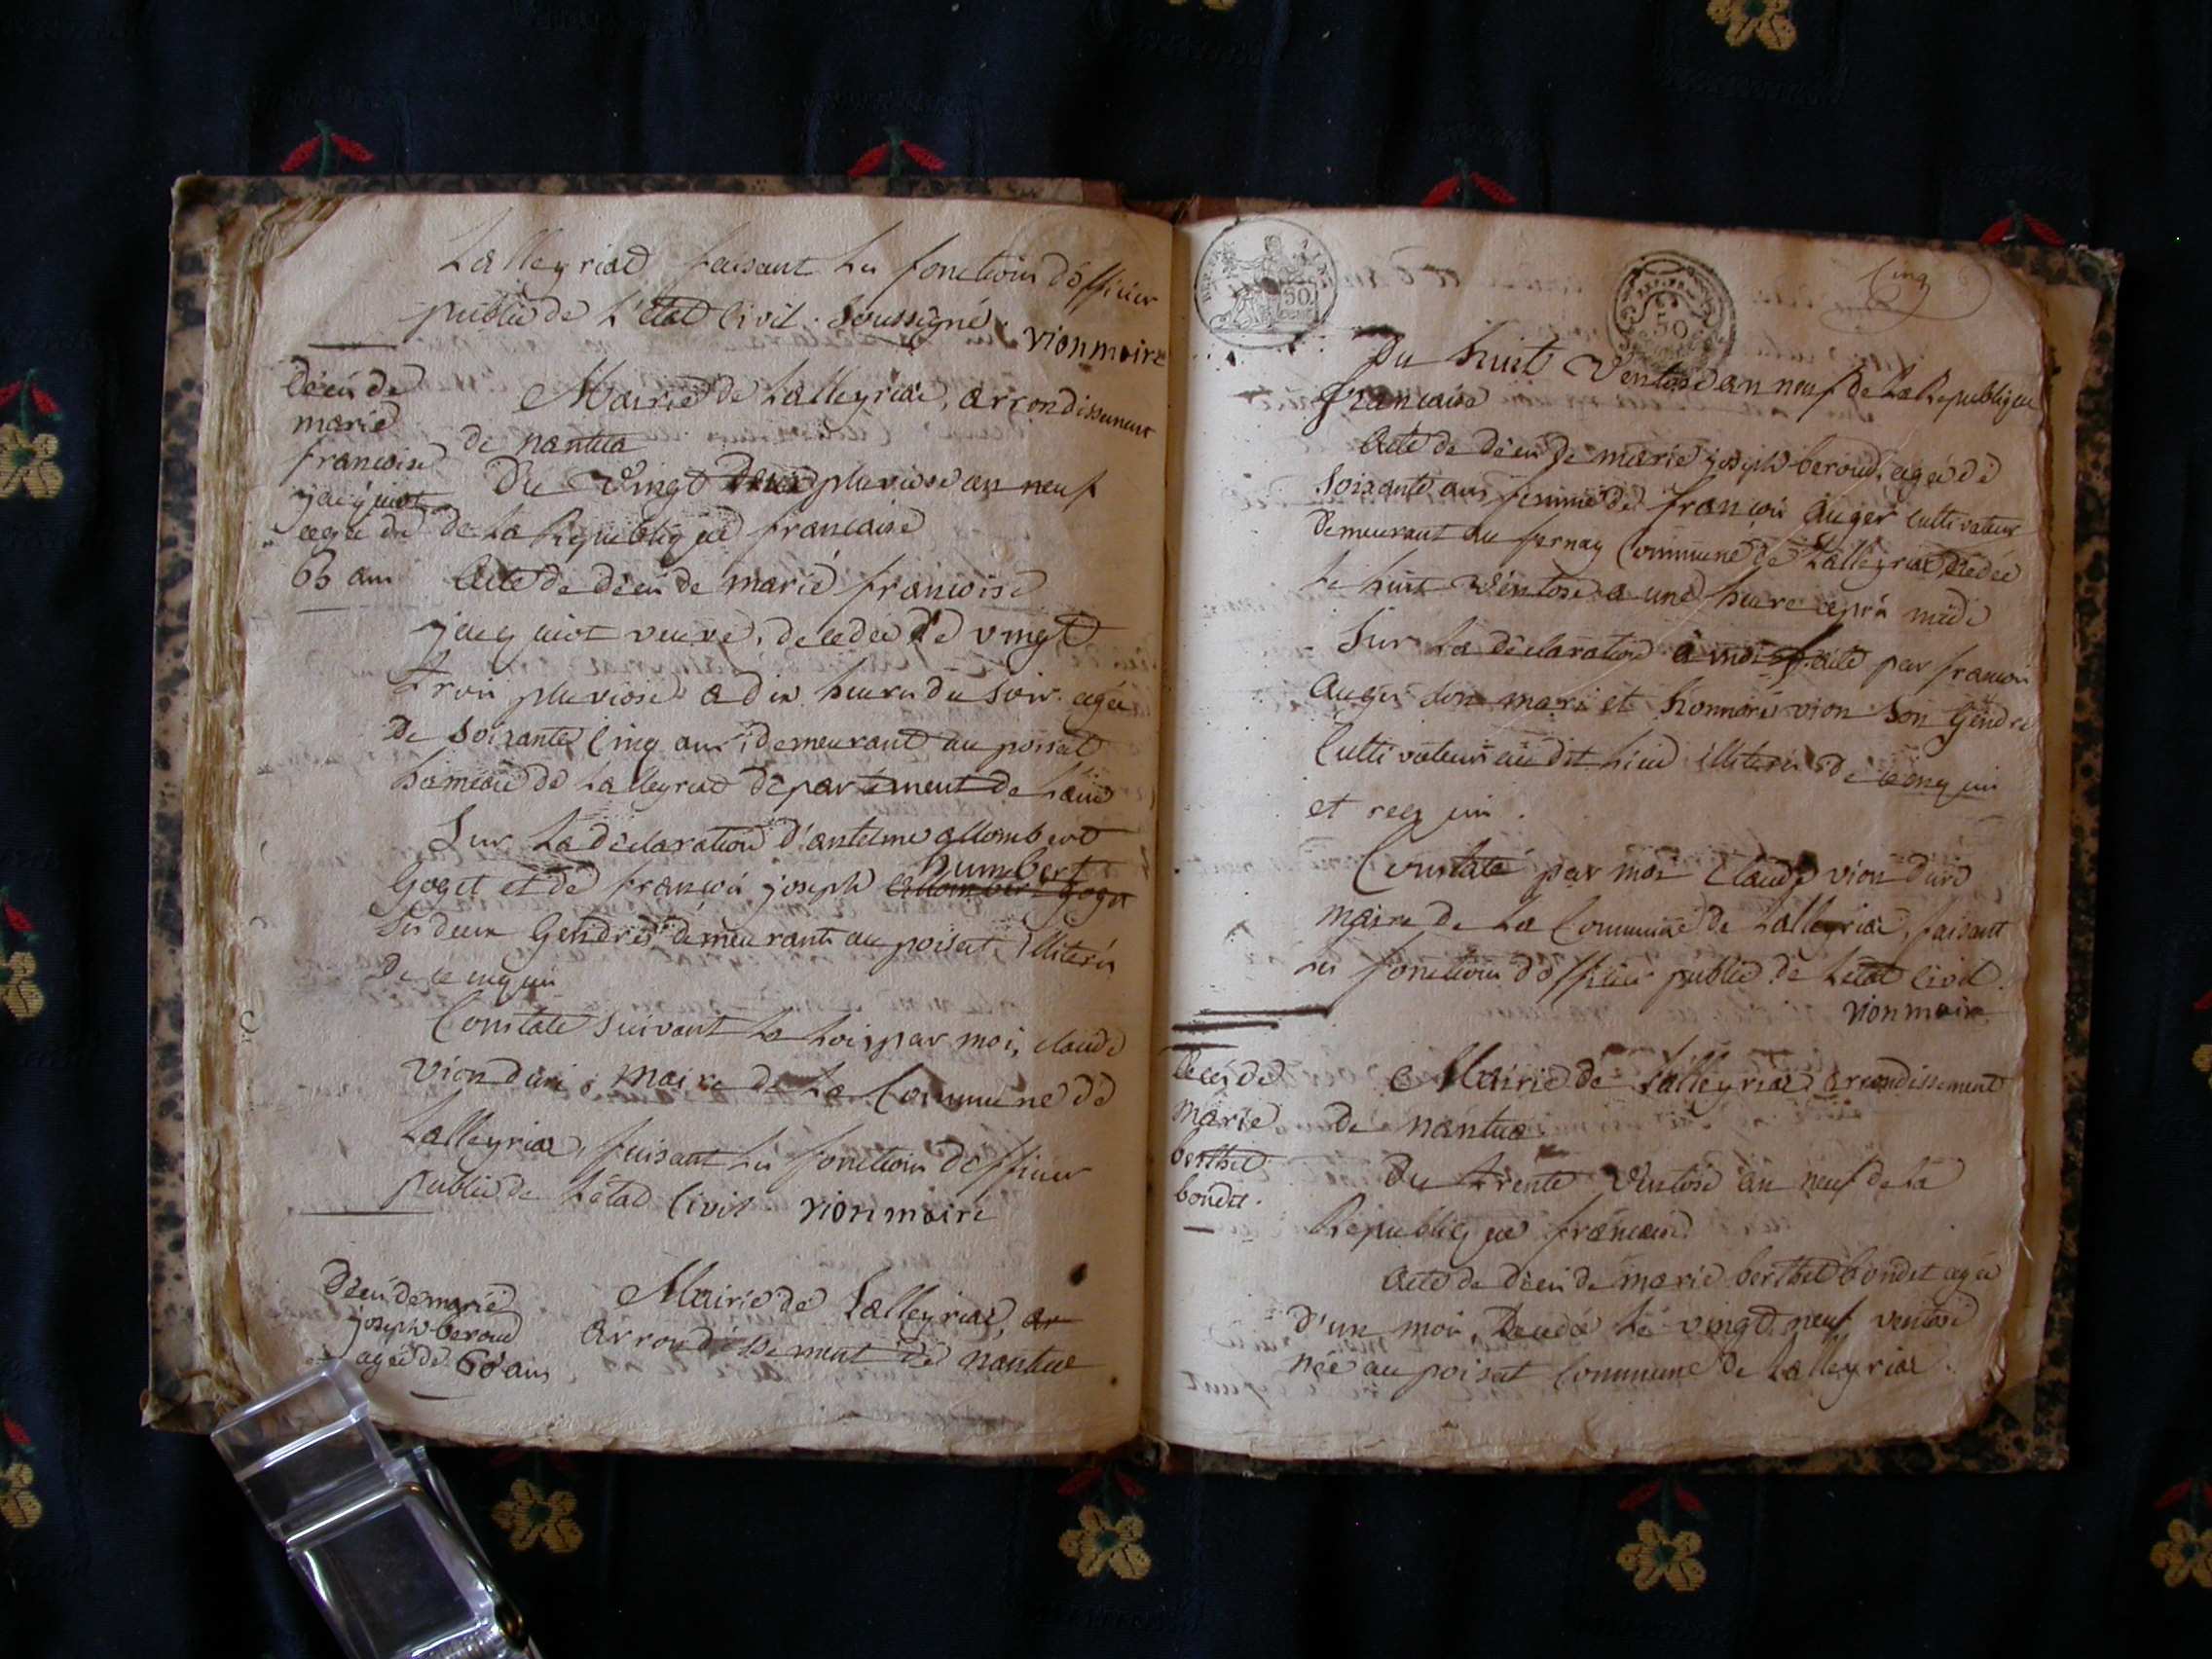 Lalleyriat faisant les fonctions d'officier
public de L'état Civil. Soussigné. vionmaire
décès de
marie
francoise
jacquiot
agée de
65 ans
Mairie de Lalleyriat, arrondissement
de nantua
Du vingt pluviose an neuf
de La Republique francaise
Acte de décès de marie francoise
jacquiot veuve, décedée le vingt
trois pluviose a dix heures du soir. agée
de soixante cinq ans demeurant au poisat
hameau de Lalleyriat département de Lain
Sur La déclaration d'antelme allombert
humbert
Goget et de françois joseph allombert goget
ses deux Gendres demeurants au poisat, illiterés
de ce enquis
Constaté suivant La Loi, par moi, claude
vion duri, maire de La Commune de
Lalleyriat, faisant les fonctions d'officier
public de L'état Civil vionmaire
Décès de marie
joseph beroud
agée de 60 ans
Mairie de Lalleyriat, ar
arrondissement de nantua
Cinq
50
50
Du huit Ventose an neuf de La Republique
francaise
Acte de décès de marie joseph beroud, agée de
soixante ans femme de françois auger cultivateur
demeurant au fernay Commune de Lalleyriat décédée
Le huit Ventose a une heure après midi
Sur La déclaration à moi faite par françois
auger son mari et honnoré vion son gendre
Cultivateurs au dit Lieu illiterés de ce enquis
et requis.
Constaté par moi Claude vion duri
maire de La Commune de Lalleyriat, faisant
Les fonctions d'officier public de L'état Civil.
vionmaire
Décès de
marie
berthet
bondet.
Mairie de Lalleyriat arrondissement
de nantua
Du trente Ventose an neuf de La
Republique francaise
Acte de décès de marie berthet bondet agée
d'un mois, Décedée Le vingt neuf ventose
née au poisat Commune de Lalleyriat.